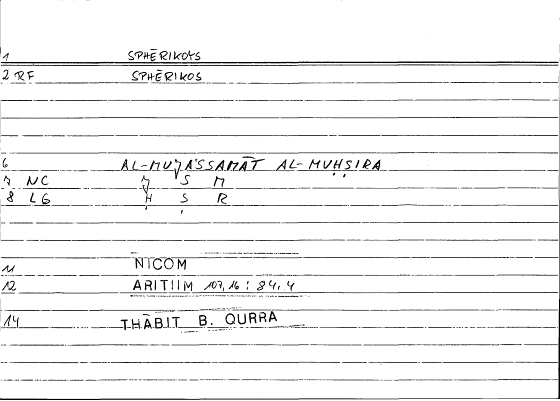 1 SPHĒRIKOYS
2 RF SPHĒRIKOS
6 AL-MUJASSAMĀT AL-MUḤṢIRA
7 NC J S M
8 LG Ḥ Ṣ R
11 NICOM
12 ARITIIM 107,16 : 84,4
14 THĀBIT B. QURRA